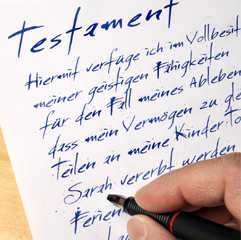 Testament
Hiermit verfüge ich im Vollbesit
meiner geistigen Fähigkeiten
für den Fall meines Ableben
dass mein Vermögen zu gle
Teilen an meine Kinder To
Sarah vererbt werden
Ferien